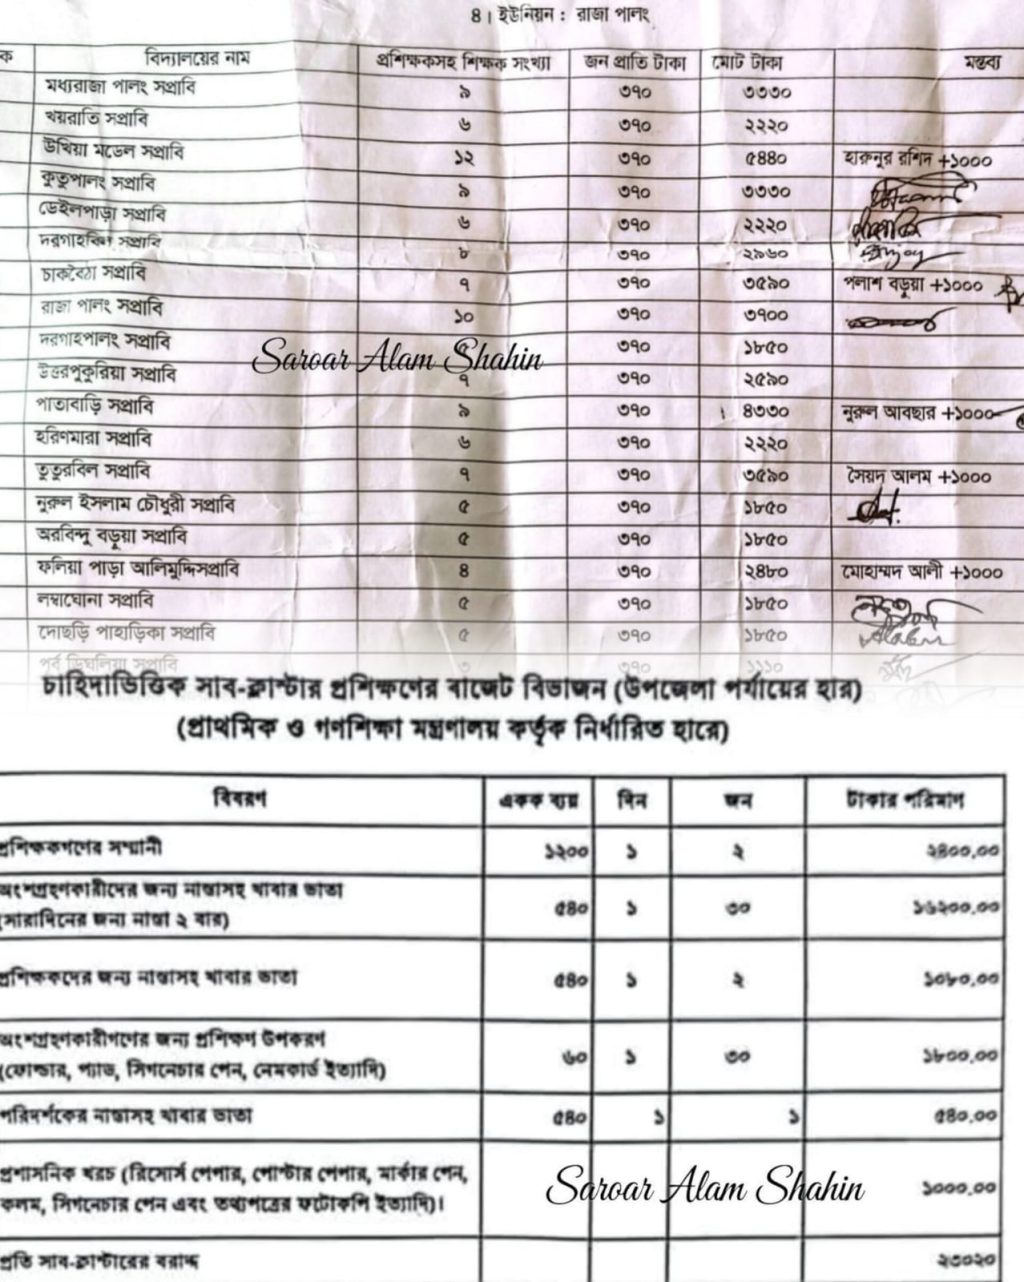 ৪। ইউনিয়ন : রাজা পালং
ক বিদ্যালয়ের নাম প্রশিক্ষকসহ শিক্ষক সংখ্যা জন প্রতি টাকা মোট টাকা মন্তব্য
মধ্যরাজা পালং সপ্রাবি ৯ ৩৭০ ৩৩৩০
খয়রাতি সপ্রাবি ৬ ৩৭০ ২২২০
উখিয়া মডেল সপ্রাবি ১২ ৩৭০ ৫৪৪০ হারুনুর রশিদ +১০০০
কুতুপালং সপ্রাবি ৯ ৩৭০ ৩৩৩০
ডেইলপাড়া সপ্রাবি ৬ ৩৭০ ২২২০
দরগাহবিল সপ্রাবি ৮ ৩৭০ ২৯৬০
চাকবৈঠা সপ্রাবি ৭ ৩৭০ ৩৫৯০ পলাশ বড়ুয়া +১০০০
রাজা পালং সপ্রাবি ১০ ৩৭০ ৩৭০০
দরগাহপালং সপ্রাবি ৩৭০ ১৮৫০
Saroar Alam Shahin
উত্তরপুকুরিয়া সপ্রাবি ৭ ৩৭০ ২৫৯০
পাতাবাড়ি সপ্রাবি ৯ ৩৭০ ৪৩৩০ নুরুল আবছার +১০০০
হরিণমারা সপ্রাবি ৬ ৩৭০ ২২২০
তুতুরবিল সপ্রাবি ৭ ৩৭০ ৩৫৯০ সৈয়দ আলম +১০০০
নুরুল ইসলাম চৌধুরী সপ্রাবি ৫ ৩৭০ ১৮৫০
অরবিন্দু বড়ুয়া সপ্রাবি ৫ ৩৭০ ১৮৫০
ফলিয়া পাড়া আলিমুদ্দিসপ্রাবি ৪ ৩৭০ ২৪৮০ মোহাম্মদ আলী +১০০০
লম্বাঘোনা সপ্রাবি ৫ ৩৭০ ১৮৫০
দোছড়ি পাহাড়িকা সপ্রাবি ৫ ৩৭০ ১৮৫০
পূর্ব ডিঘলিয়া সপ্রাবি ৩ ৩৭০ ১১১০
চাহিদাভিত্তিক সাব-ক্লাস্টার প্রশিক্ষণের বাজেট বিভাজন (উপজেলা পর্যায়ের হার)
(প্রাথমিক ও গণশিক্ষা মন্ত্রণালয় কর্তৃক নির্ধারিত হারে)
বিবরণ একক ব্যয় দিন জন টাকার পরিমাণ
প্রশিক্ষকগণের সম্মানী ১২০০ ১ ২ ২৪০০.০০
অংশগ্রহণকারীদের জন্য নাস্তাসহ খাবার ভাতা
(সারাদিনের জন্য নাস্তা ২ বার) ৫৪০ ১ ৩০ ১৬২০০.০০
প্রশিক্ষকদের জন্য নাস্তাসহ খাবার ভাতা ৫৪০ ১ ২ ১০৮০.০০
অংশগ্রহণকারীগণের জন্য প্রশিক্ষণ উপকরণ
(ফোল্ডার, প্যাড, সিগনেচার পেন, নেমকার্ড ইত্যাদি) ৬০ ১ ৩০ ১৮০০.০০
পরিদর্শকের নাস্তাসহ খাবার ভাতা ৫৪০ ১ ১ ৫৪০.০০
প্রশাসনিক খরচ (রিসোর্স পেপার, পোস্টার পেপার, মার্কার পেন,
কলম, সিগনেচার পেন এবং তথ্যপত্রের ফটোকপি ইত্যাদি)। ১০০০.০০
Saroar Alam Shahin
প্রতি সাব-ক্লাস্টারের বরাদ্দ ২৩০২০